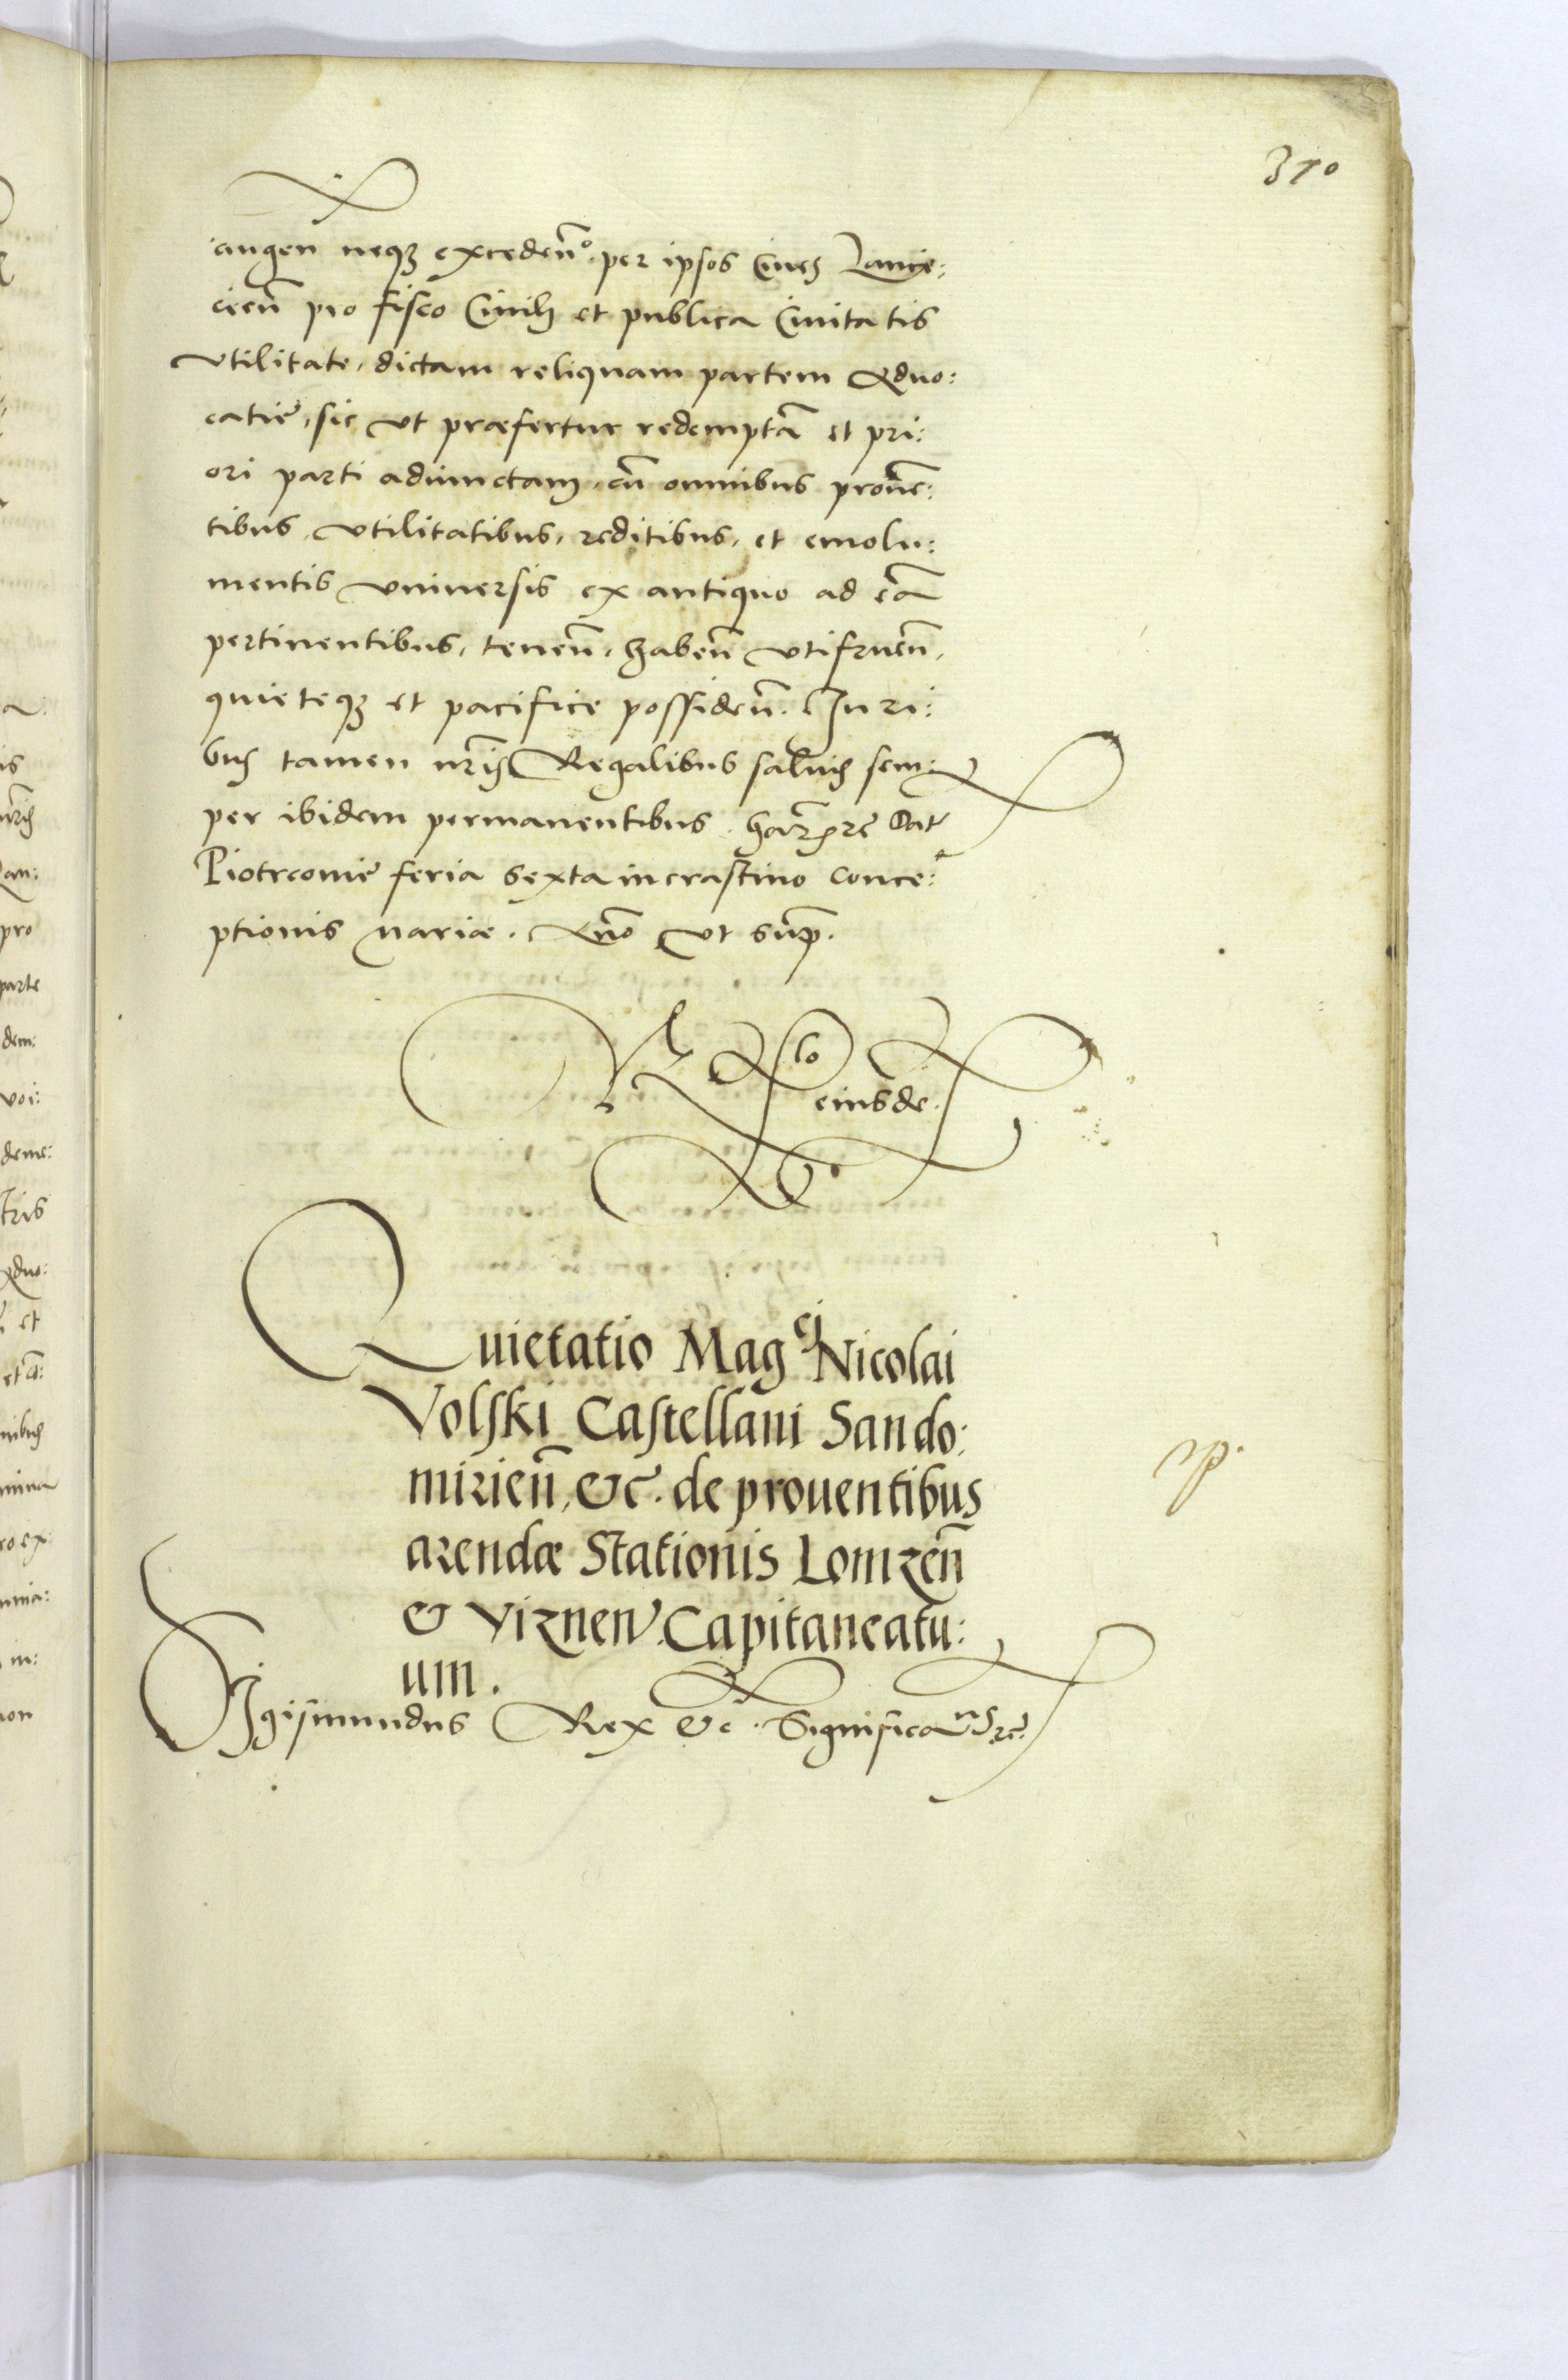 310
augen neqȝ excedenº. per ipsos Ciueȝ Lanci:
cieñ pro fisco Ciuilj et publica Ciuitatis
vtilitate, dictam reliquam partem Aduo:
catie, sic vt præfertur redemptã et pri:
ori parti adiunctam, cũ omnibus prouẽ:
tibus, vtilitatibus, reditibus, et emolu:
mentis vniuersis ex antiquo ad eã
pertinentibus, teneñ, habeñ vtifrueñ,
quieteqȝ et pacifice possideñ. Iuri:
bus tamen nr̃is Regalibus saluis sem:
per ibidem permanentibus. Dat
Piotrcouiẽ feria sexta in crastino conce:
ptionis Mariæ. Año vt sup̃.
Rlõ
eiusdẽ.
Quietatio Magci Nicolai
Volski Castellani Sando:
mirieñ, &c. de prouentibus
arendæ Stationis Lomzeñ
& Viznen. Capitaneatu:
um.
Sigismundus Rex &c. Significaus